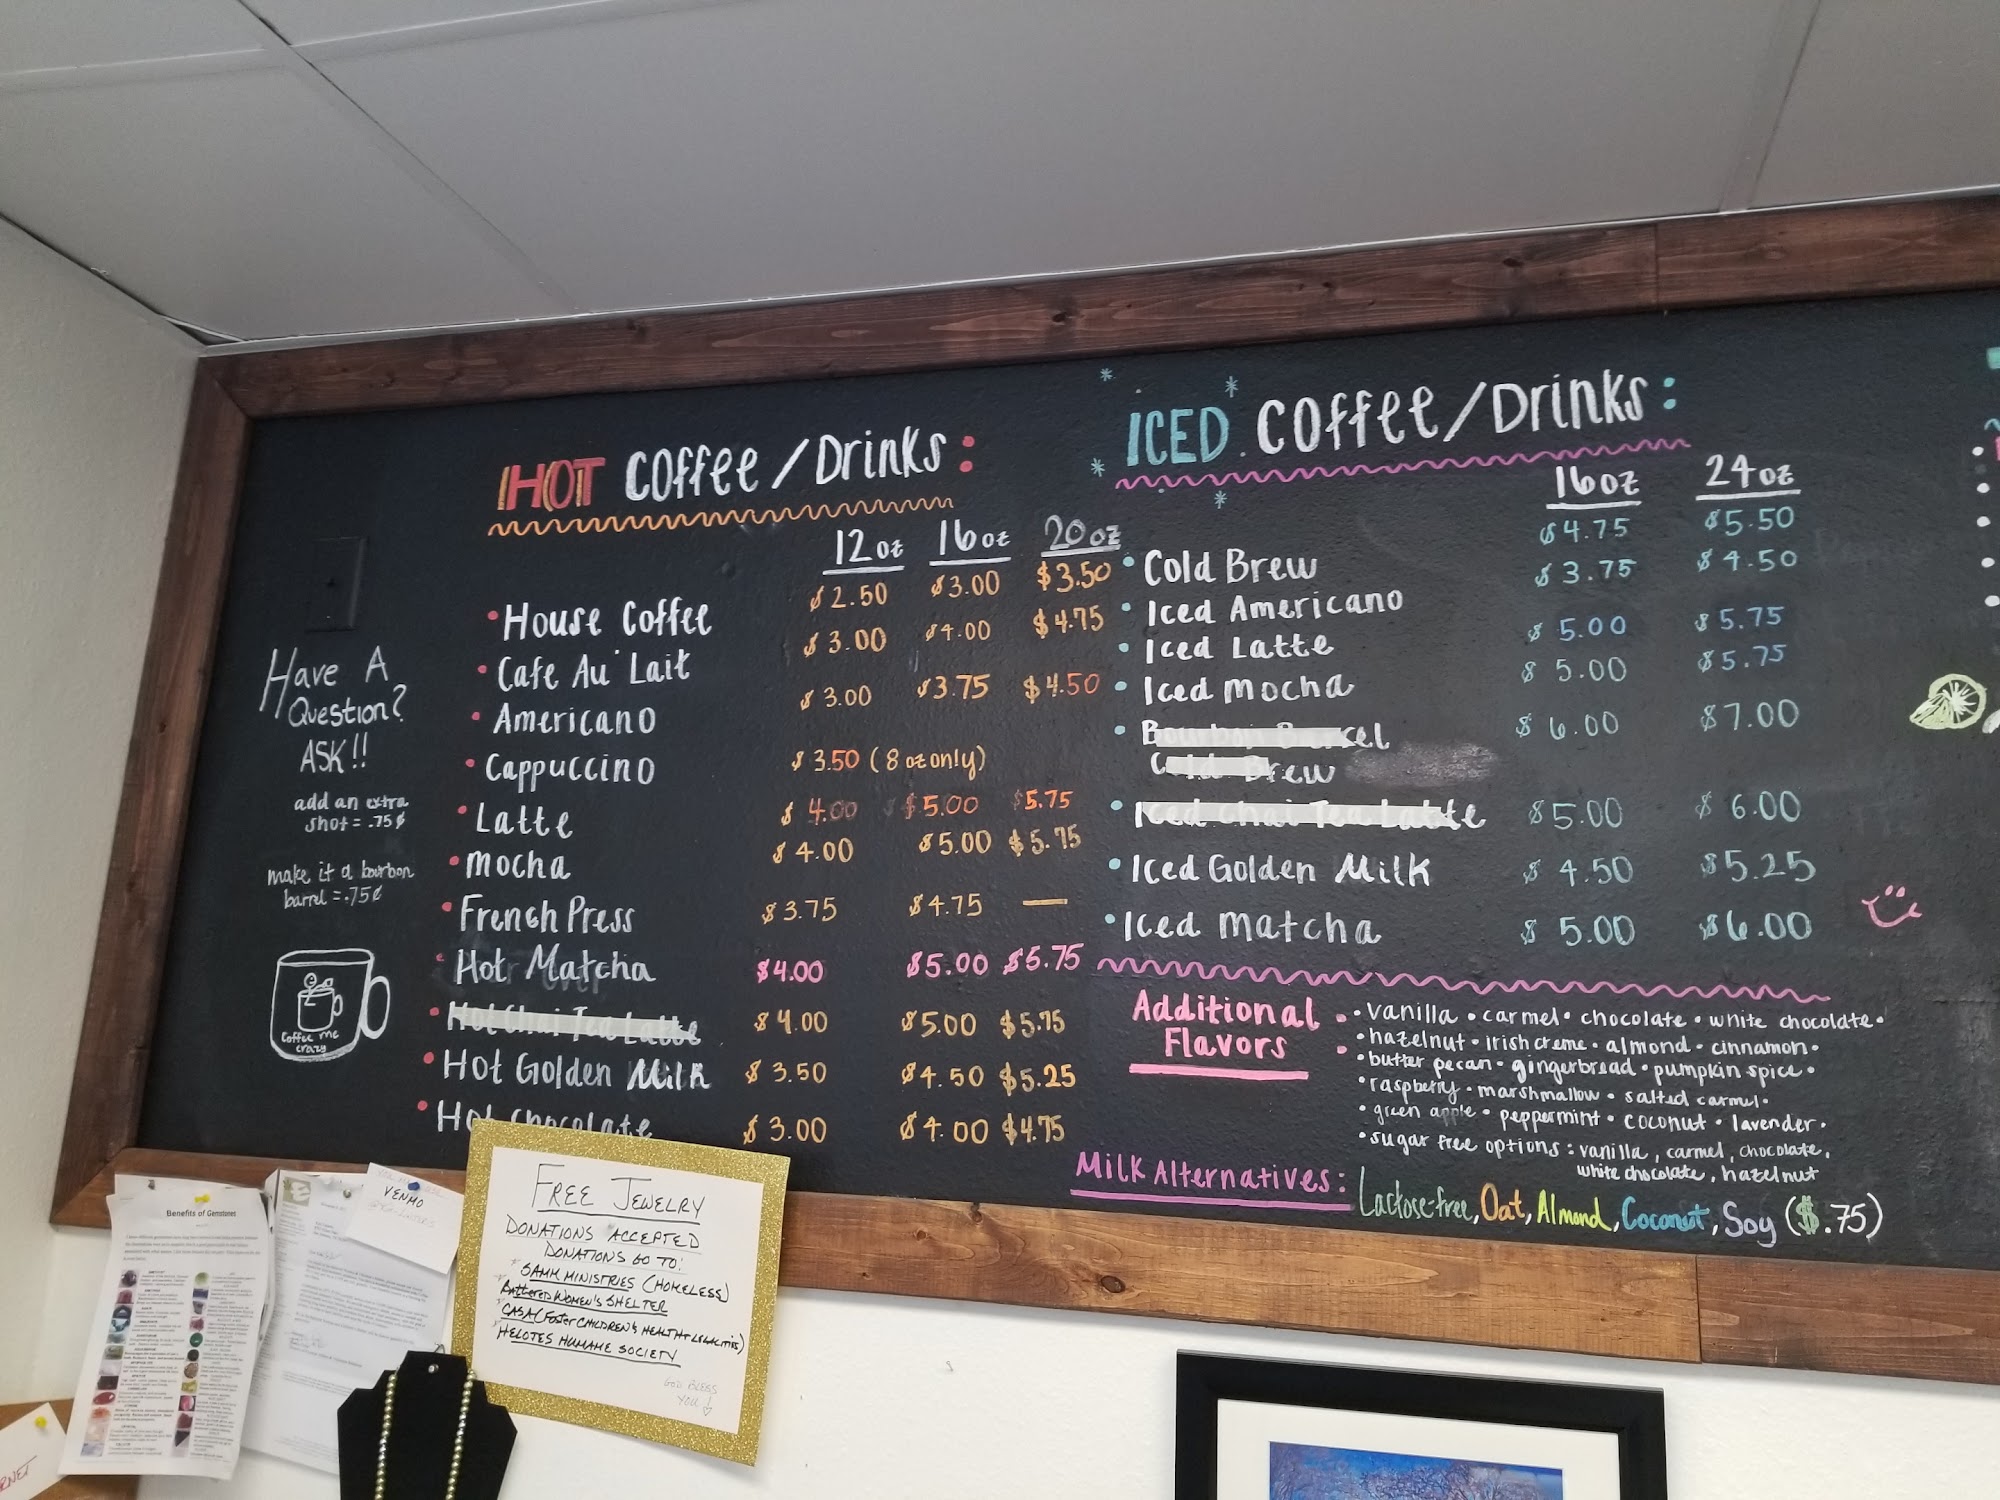 HOT Coffee/Drinks:
12oz 16oz 20oz
• House Coffee $2.50 $3.00 $3.50
• Cafe Au' Lait $3.00 $4.00 $4.75
• Americano $3.00 $3.75 $4.50
• Cappuccino $3.50 (8oz only)
• Latte $4.00 $5.00 $5.75
• Mocha $4.00 $5.00 $5.75
• French Press $3.75 $4.75 —
• Hot Matcha $4.00 $5.00 $5.75
• Hot Chai Tea Latte $4.00 $5.00 $5.75
• Hot Golden Milk $3.50 $4.50 $5.25
• Hot Chocolate $3.00 $4.00 $4.75
Have A
Question?
ASK!!
add an extra
shot = .75¢
make it a bourbon
barrel = .75¢
Coffee me
crazy
ICED Coffee/Drinks:
16oz 24oz
• Cold Brew $4.75 $5.50
• Iced Americano $3.75 $4.50
• Iced Latte $5.00 $5.75
• Iced Mocha $5.00 $5.75
• Bourbon Barrel $6.00 $7.00
Cold Brew
• Iced Chai Tea Latte $5.00 $6.00
• Iced Golden Milk $4.50 $5.25
• Iced Matcha $5.00 $6.00
Additional
Flavors :
• vanilla • carmel • chocolate • white chocolate •
• hazelnut • irish creme • almond • cinnamon •
• butter pecan • gingerbread • pumpkin spice •
• raspberry • marshmallow • salted carmel •
• green apple • peppermint • coconut • lavender •
• sugar free options : vanilla, carmel, chocolate,
white chocolate, hazelnut
Milk Alternatives: Lactose-free, Oat, Almond, Coconut, Soy ($.75)
Benefits of Gemstones
VENMO
FREE JEWELRY
DONATIONS ACCEPTED
DONATIONS GO TO:
* SAMM MINISTRIES (HOMELESS)
* Battered WOMEN'S SHELTER
* CASA (FOSTER CHILDREN'S HEALTH + LEGALITIES)
* HELOTES HUMANE SOCIETY
GOD BLESS
YOU!